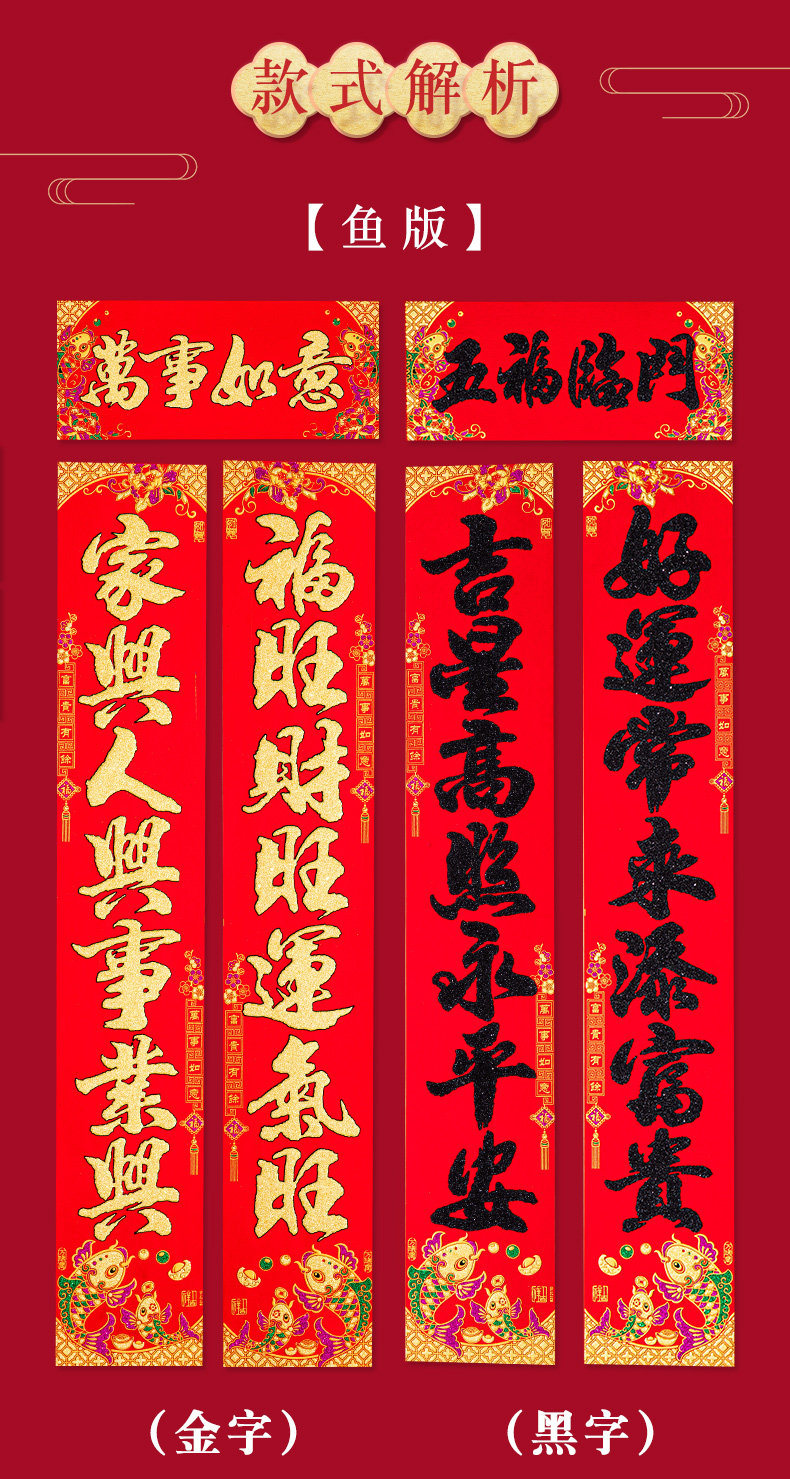 款式解析
【鱼版】
萬事如意
五福臨門
家興人興事業興
福旺財旺運氣旺
吉星高照永平安
好運常來添富貴
富貴有餘
福
萬事如意
福
萬事如意
福
富貴有餘
福
富貴有餘
福
萬事如意
福
萬事如意
福
富貴有餘
福
（金字）
（黑字）